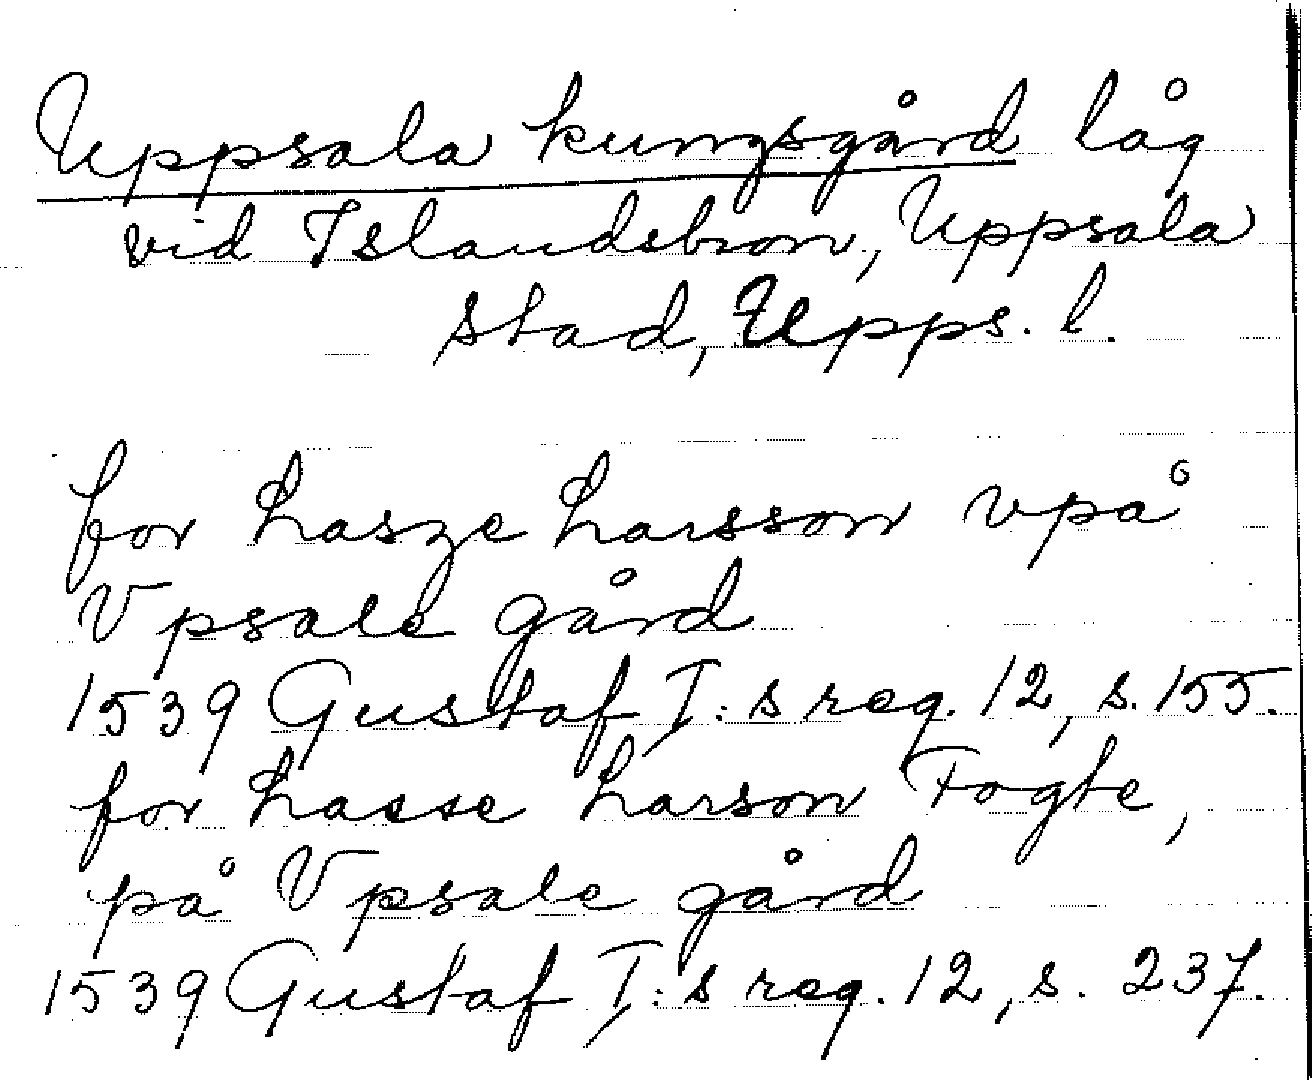 Uppsala kungsgård låg
vid Islandsbron, Uppsala
stad, Upps. l.
for Lasze Larsson vpå
Vpsale gård
1539 Gustaf I:s reg. 12, s. 155.
for Lasse Larson Fogte,
på Vpsale gård
1539 Gustaf I:s reg. 12, s. 237.